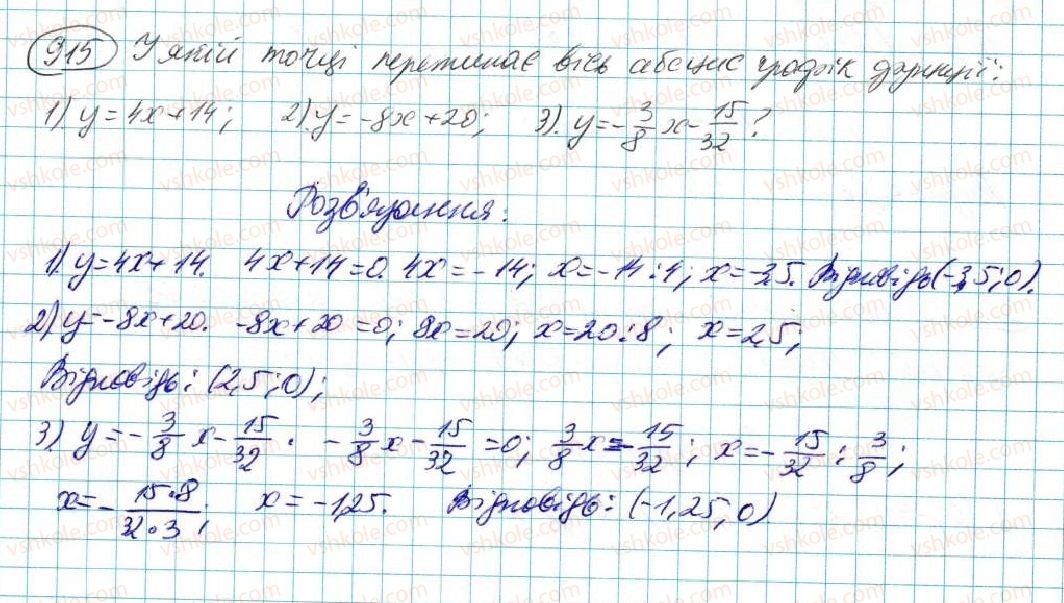 915 У якій точці перетинає вісь абсцис графік функції:
1) y=4x+14; 2) y=-8x+20; 3). y=-3/8 x-15/32?
Розв'язання:
1). y=4x+14. 4x+14=0. 4x=-14; x=-14:4; x=-3,5. Відповідь (-3,5;0).
2) y=-8x+20. -8x+20=0; 8x=20; x=20:8; x=2,5;
Відповідь: (2,5;0);
3) y=-3/8 x-15/32. -3/8 x-15/32=0; 3/8 x=-15/32; x=-15/32:3/8;
x=-15•8/32•3; x=-1,25. Відповідь: (-1,25,0)